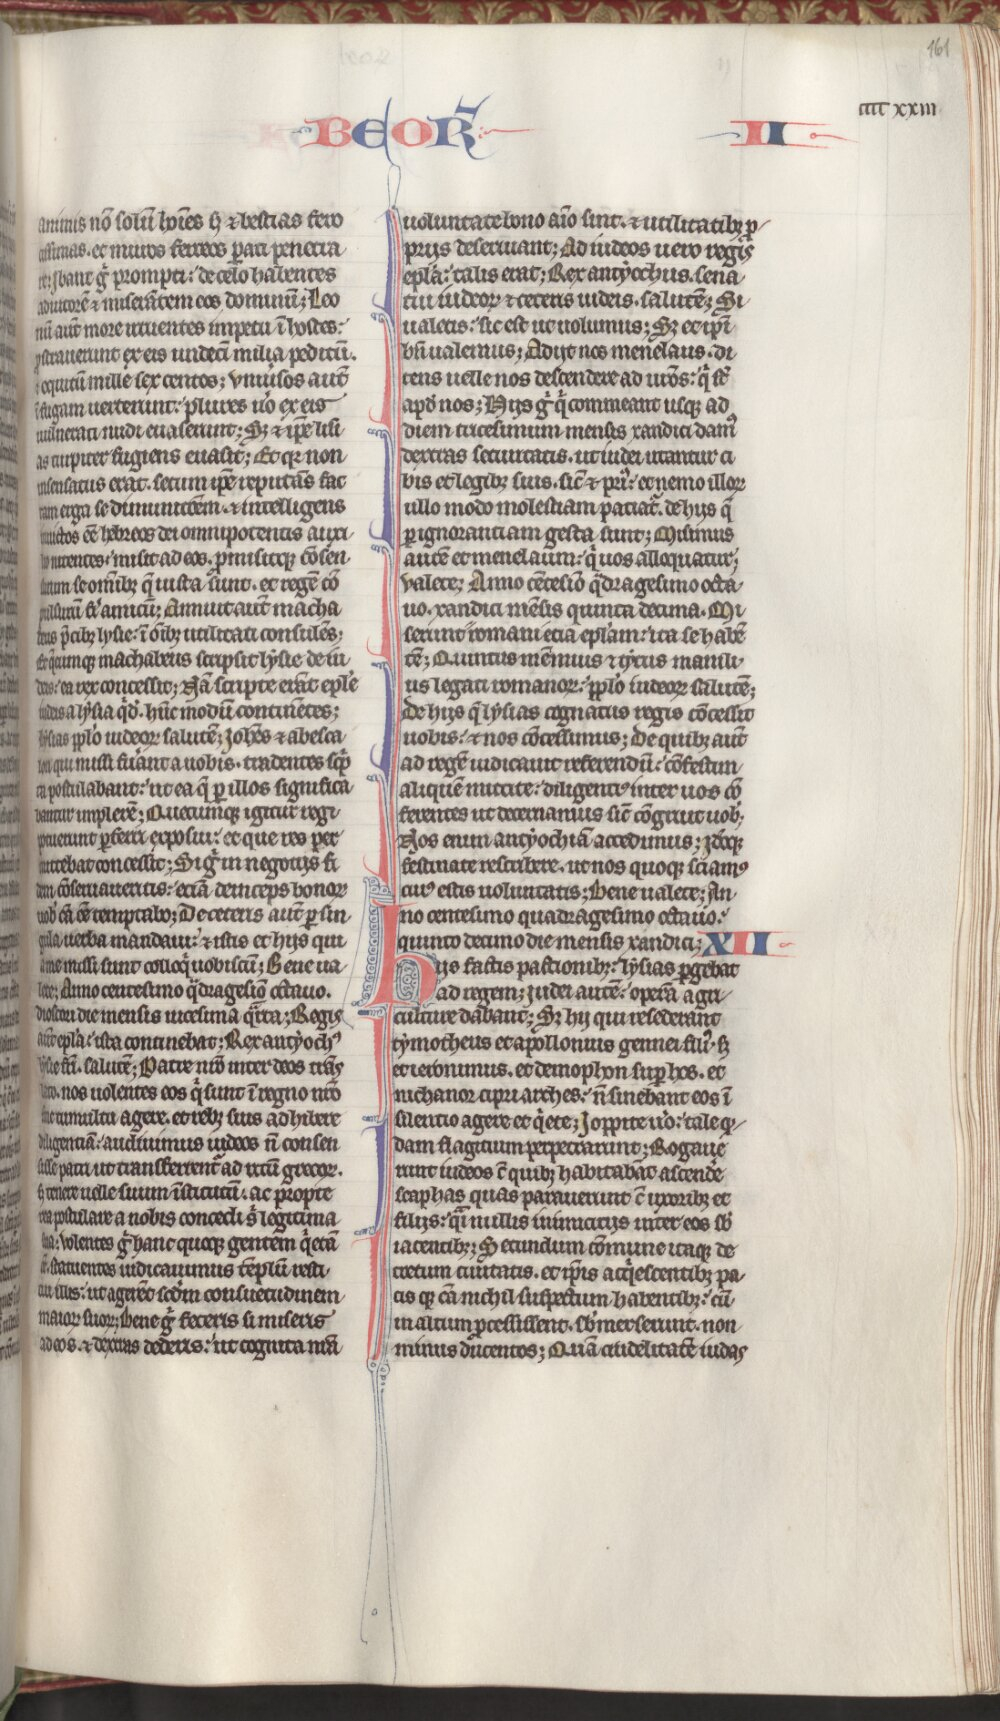 161
cccc xxiii
BEOR̃ II
animis nõ solũ hoĩes sꝫ ⁊ bestias fero
cissimas. et muros ferreos pati penetra
re; Ibant gͥ prompti: de celo habentes
adiutorẽ ⁊ miserãtem eos dominũ; Leo
nũ aũt more irruentes impetu ĩ hostes:
ꝓstrauerunt ex eis undecĩ milia peditũ.
⁊ equitũ mille sex centos; Vniũsos aũt
ĩ fugam uerterunt: plures ũo ex eis
uulnerati nudi euaserunt; Sꝫ ⁊ ipẽ lisi
as turpiter fugiens euasit; Et qꝛ non
insensatus erat. secum ipẽ reputãs fac
tam erga se diminutiõem. ⁊ intelligens
inuictos eẽ hebreos dei omnipotentis auxi
lio nitentes: misit ad eos. ꝓmisitqꝫ cõsen
surum se omĩbꝫ q̃ iusta sunt. et regẽ cõ
pulsurũ fiͥ amicũ; Annuit aũt macha
beus p̃cibꝫ lysie: ĩ oĩbꝫ utilitati consulẽs;
Et q̃cumqꝫ machabeus scripsit lysie de iu
deis: ea rex concessit; Nã scripte erãt eple
iudeis a lysia qͥdẽ. hũc modũ continẽtes;
lysias pp̃lo iudeoꝝ salutẽ; Iohẽs ⁊ abesca
lon qui missi fũant a uobis. tradentes scͥpͣ
ca postulabant: ut ea q̃ ꝑ illos significa
bantur implerẽ; Quecumqꝫ igitur regi
potuerunt ꝑferri exposui: et que res per
mittebat concessit; Si gͥ in negotiis fi
dem cõseruaueritis: eciã deinceps bonoꝝ
uob̃ cã eẽ temptabo; De ceteris aũt ꝑ sin
gula uerba mandaui: ⁊ istis et hijs qui
a me missi sunt colloq̃ uobiscũ; Bene ua
lete; Anno centesimo qͣdragesiõ octauo.
dioscori die mensis uicesima qͣrta; Regis
aũt epla: ista continebat; Rex antyochꝰ
lysie fr̃i. salutẽ; Patre nr̃o inter deos trãs
lato. nos uolentes eos qͥ sunt ĩ regno nr̃o
sine tumultu agere. et rebꝫ suis adhibere
diligentiã: audiuimus iudeos ñ consen
sisse patri ut transferrent̃ ad ritũ grecoꝝ.
sꝫ tenere uelle suum ĩstitutũ: ac propte
rea postulare a nobis concedi s̃ legitima
sua; Volentes gͥ hanc quoqꝫ gentem qͥetã
eẽ. statuentes iudicauimus tẽplũ resti
tui illis: ut agerẽt scd̃m consuetudinem
maioꝝ suoꝝ; Bene gͥ feceris si miseris
ad eos. ⁊ dextras dederis: ut cognita nr̃a
uoluntate bono aĩo sint. ⁊ utilitatibꝫ ꝓ
prijs deseruiant; Ad iudeos uero regis
epl̃a: talis erat; Rex antyochus. sena
tui iudeoꝝ ⁊ ceteris iudeis. salutẽ; Si
ualetis: sic est ut uolumus; Sꝫ et ipͥ
bñ ualemus; Adijt nos menelaus. di
cens uelle nos descendere ad ur̃os: qͥ st̃
apd̃ nos; Hijs gͥ qͥ commeant usqꝫ ad
diem tricesimum mensis xandici damꝰ
dextras securitatis. ut iudei utantur ci
bis et legibꝫ suis. sicͭ ⁊ priꝰ: et nemo illoꝝ
ullo modo molestiam patiat̃. de hijs q̃
ꝑ ignorantiam gesta sunt; Misimus
autẽ et menelaum: qͥ uos alloquatur;
Valete; Anno cẽtesiõ qͣdragesimo octa
uo. xandici mẽsis quinta decima. Mi
serunt romani eciã epl̃am: ita se habẽ
tẽ; Quintus mẽmius ⁊ tytus manili
us legati romanoꝝ: pp̃lo iudeoꝝ salutẽ;
De hijs q̃ lysias cognatus regis cõcessit
uobis: ⁊ nos cõcessimus; De quibꝫ aũt
ad regẽ iudicauit referendũ: cõfestim
aliquẽ mittite: diligentiꝰ inter uos cõ
ferentes ut decernamus sicͭ cõgruit uob̃;
Nos enim antyochiã accedimus; Idcͥqꝫ
festinate rescribere. ut nos quoqꝫ sciamꝰ
cuiꝰ estis uoluntatis; Bene ualete; An
no centesimo quadragesimo octauo:
quinto decimo die mensis xandici; XII
Hijs factis pactionibꝫ: lysias ꝑgebat
ad regem; Iudei autẽ: operã agri
culture dabant; Sꝫ hij qui resederant
tymotheus et apollonius gennei filiꝰ. sꝫ
et ieronimus. et demophon suꝑbꝰ. et
nichanor cipri arches: ñ sinebant eos ĩ
silentio agere et qͥete; Ioppite ũo: tale qͦ
dam flagitium perpetrarunt; Rogaue
runt iudeos c̃ quibꝫ habitabãt ascende
scaphas quas parauerunt c̃ uxoribꝫ et
filijs: qͣi nullis inimicitijs inter eos sb̃
iacentibꝫ; Secundum cõmune itaqꝫ de
cretum ciuitatis. et ip̃is acqͥescentibꝫ pa
cis qꝫ cã nichil suspectum habentibꝫ: cũ
in altum ꝓcessissent. sb̃merserunt. non
minus ducentos; Quã crudelitatẽ iudas